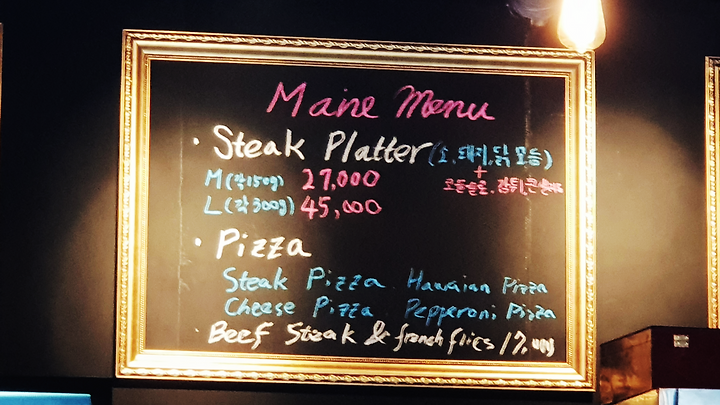 Maine Menu
· Steak Platter (소, 돼지, 닭 모듬)
M (각150g) 27,000 +
L (각300g) 45,000
· Pizza
Steak Pizza Hawaiian Pizza
Cheese Pizza Pepperoni Pizza
· Beef Steak & french fries